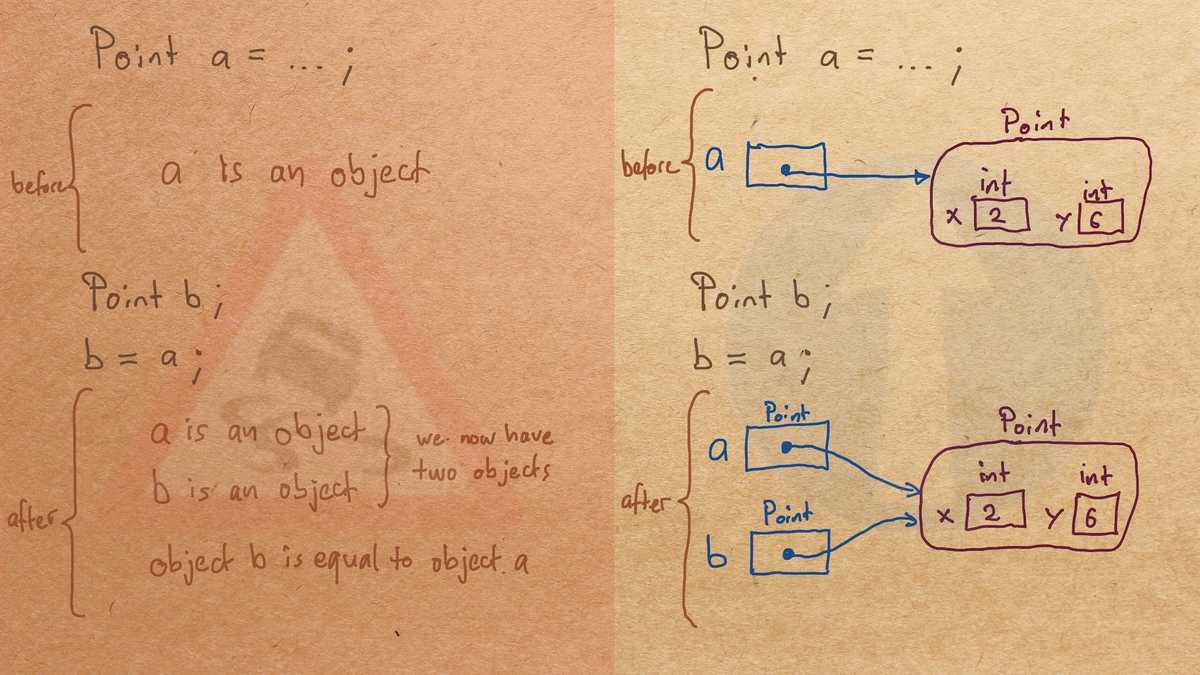 Point a = ... ;
before
a is an object
Point b ;
b = a ;
after
a is an object
b is an object
we now have
two objects
object b is equal to object a
Point a = ... ;
before
a
Point
int
int
x 2 y 6
Point b ;
b = a ;
after
Point
a
Point
b
Point
int
int
x 2 y 6